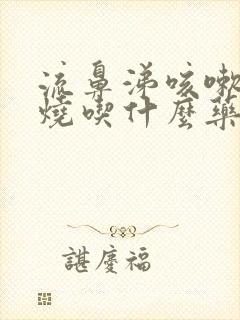 流鼻涕咳嗽
燒喫什麼藥
諶慶福